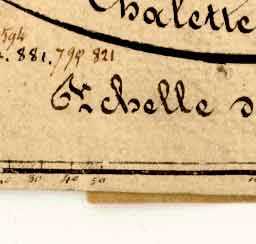 Chalette
594
881. 799 821
Echelle d
30 40 50